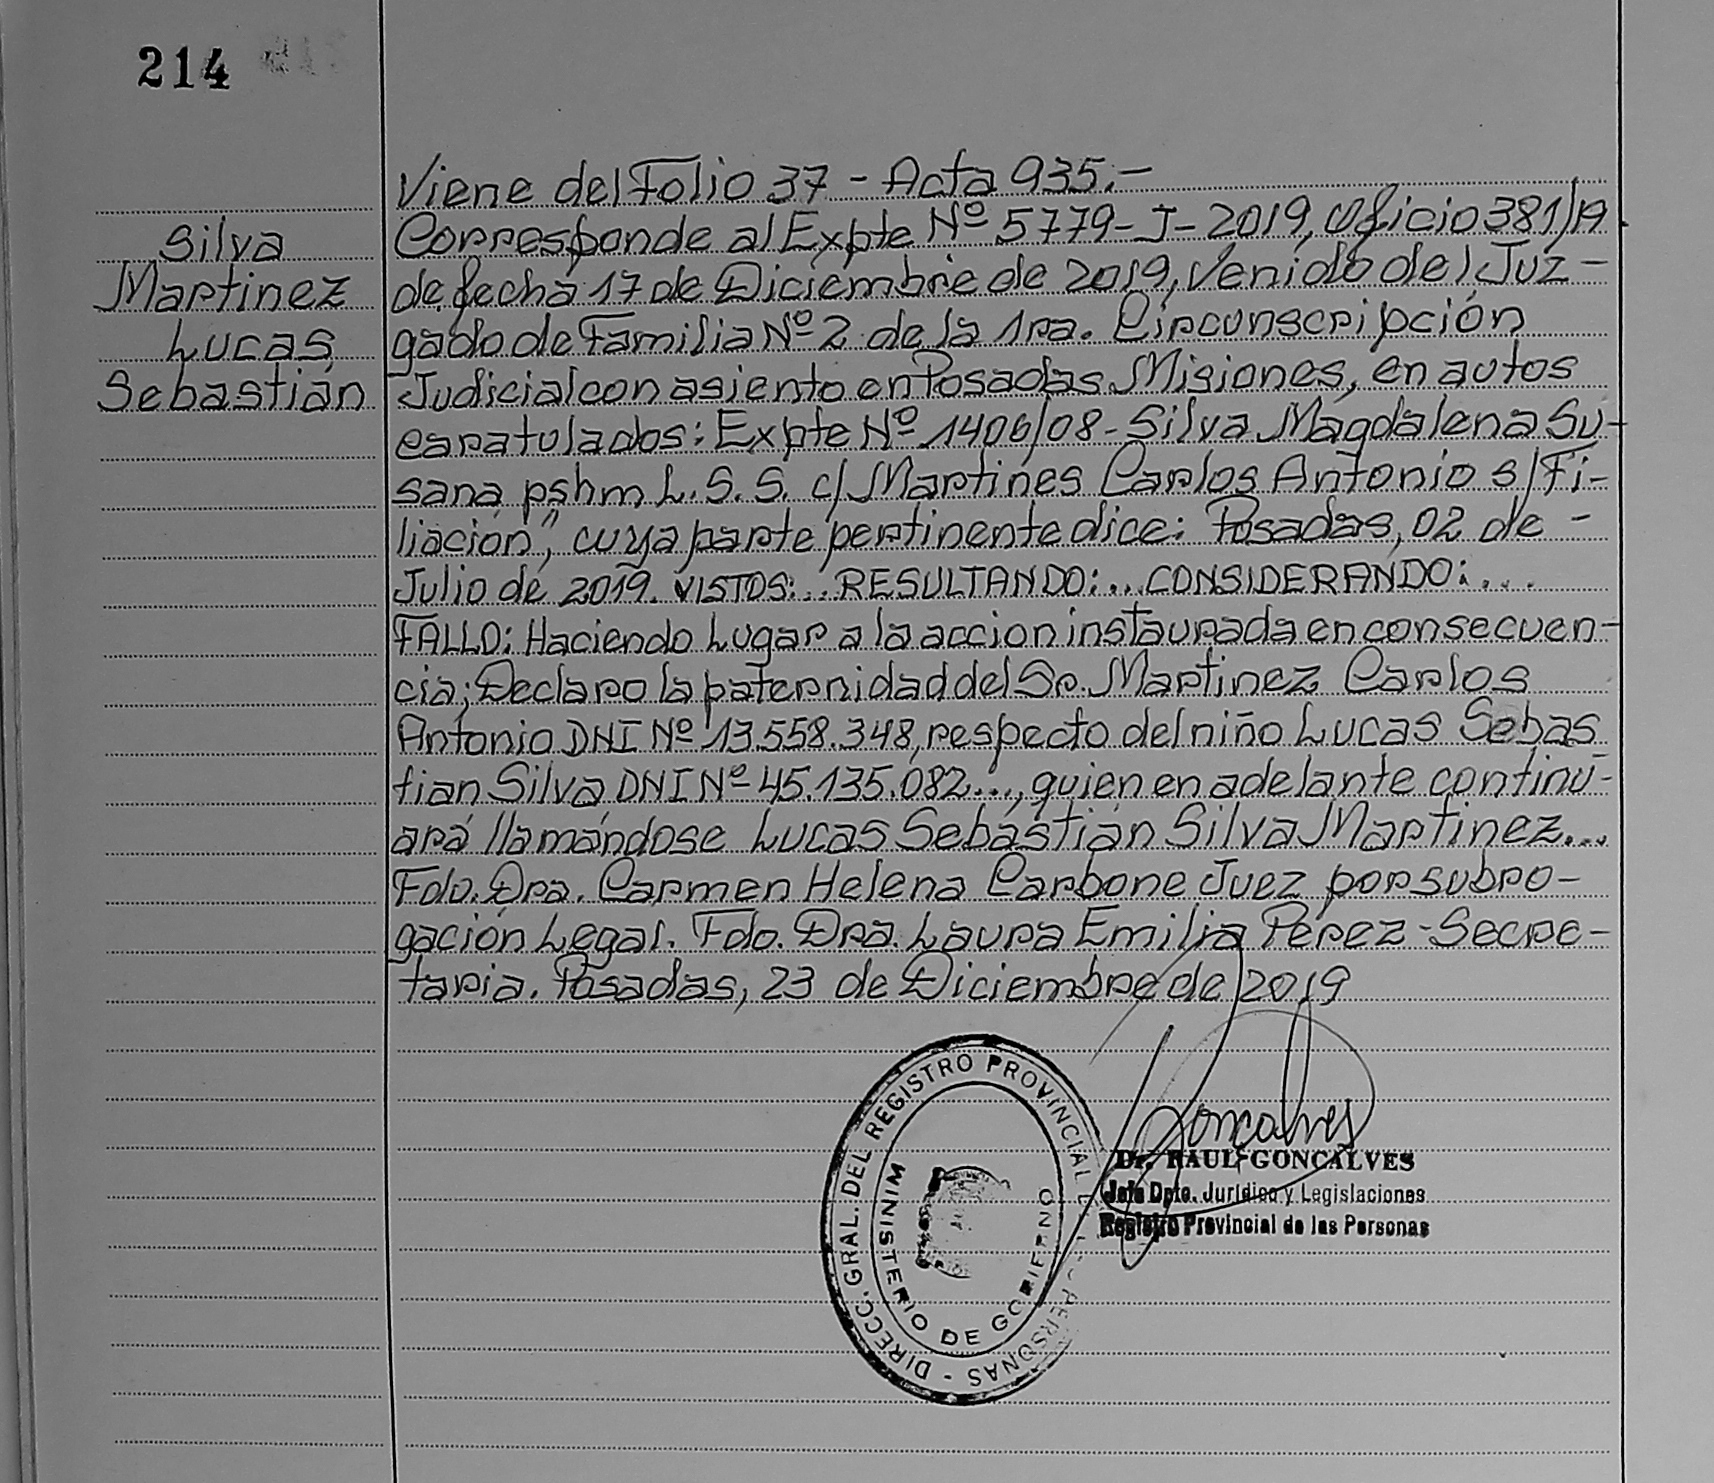 214
Silva
Martinez
Lucas
Sebastián
Viene del Folio 37 - Acta 935.-
Corresponde al Expte Nº 5779-J-2019, Oficio 381/19
de fecha 17 de Diciembre de 2019, Venido del Juz-
gado de Familia Nº 2 de la 1ra. Circunscripción
Judicial con asiento en Posadas Misiones, en autos
caratulados: Expte Nº 1406/08 - Silva Magdalena Su-
sana pshm L.S.S. c/ Martines Carlos Antonio s/ Fi-
liación", cuya parte pertinente dice: Posadas, 02 de -
Julio de 2019. VISTOS:... RESULTANDO:... CONSIDERANDO:...
FALLO: Haciendo Lugar a la accion instaurada en consecuen-
cia; Declaro la paternidad del Sr. Martinez Carlos
Antonio DNI Nº 13.558.348, respecto del niño Lucas Sebas
tian Silva DNI Nº 45.135.082..., quien en adelante continu-
ará llamándose Lucas Sebastián Silva Martinez...
Fdo. Dra. Carmen Helena Carbone Juez por subro-
gación Legal. Fdo. Dra. Laura Emilia Pérez - Secre-
taria. Posadas, 23 de Diciembre de 2019
DIRECC. GRAL. DEL REGISTRO PROVINCIAL PERSONAS -
MINISTERIO DE GOBIERNO
Goncalves
Dr. RAUL GONCALVES
Jefe Dpto. Jurídico y Legislaciones
Registro Provincial de las Personas